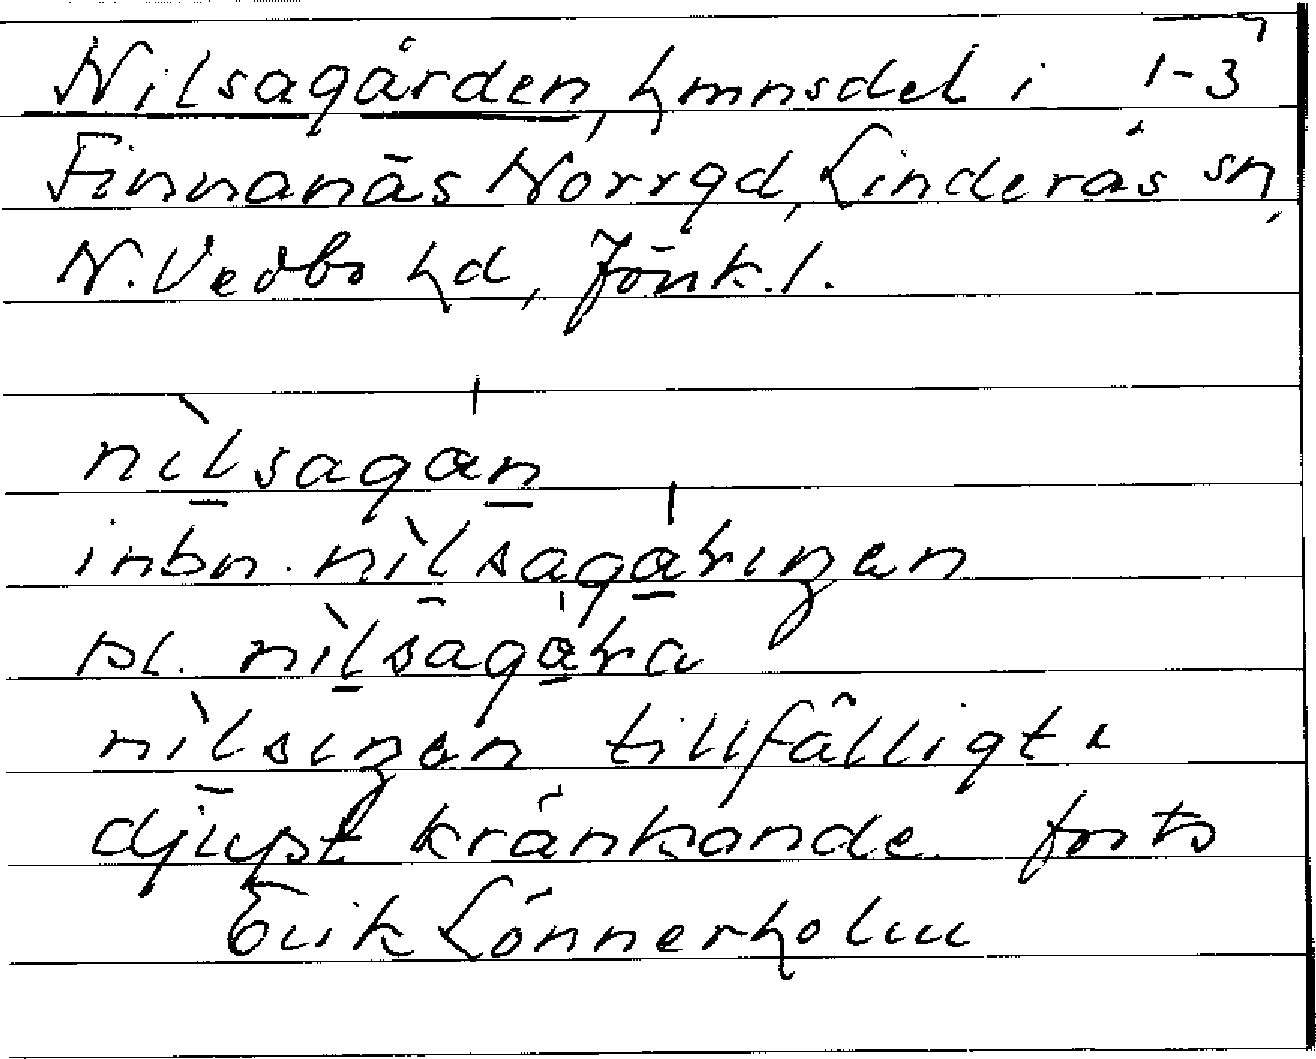 Nilsagården, hmnsdel i 1-3
Finnanäs Norrgd, Linderås sn,
N. Vedbo hd, Jönk. l.
nìlsagán
inbn. nìlsagáriŋen
pl. nìlsagára
nìlsiŋen tillfälligt
djupt kränkande forts
Erik Lönnerholm